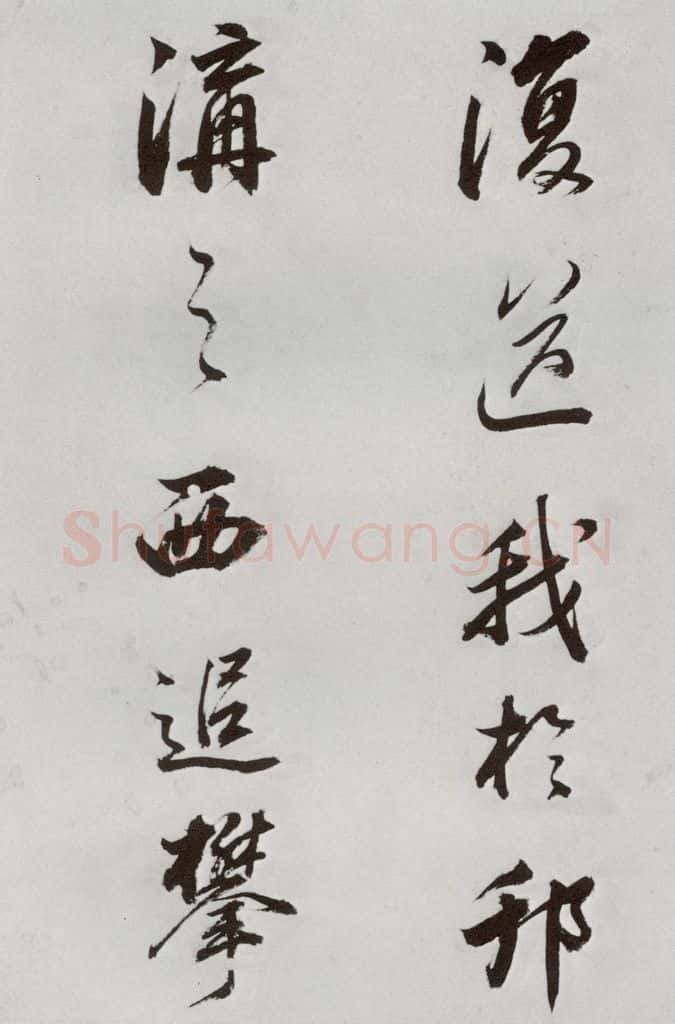 復送我於邗
溝之西追攀
Shufawang.CN